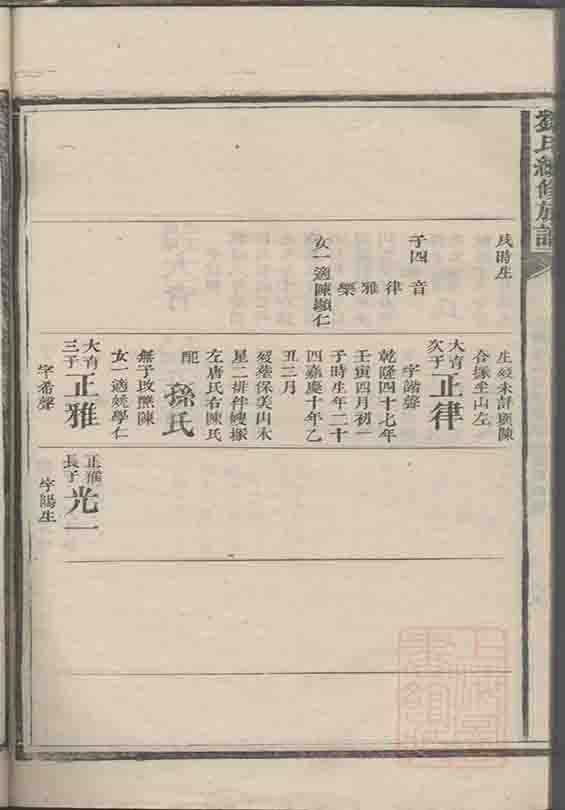 劉氏續修族譜
戌時生
子四 音
律
雅
樂
女一適陳顯仁
生歿未詳與陳
合塚坐山左
大育次子 正律
字諧聲
乾隆四十七年
壬寅四月初一
子時生年二十
四嘉慶十年乙
丑三月
歿葬保美山木
星二排伴嫂塚
左唐氏右陳氏
配 孫氏
無子改熊陳
女一適姚學仁
大育三子 正雅
字希聲
正雅長子 光一
字陽生